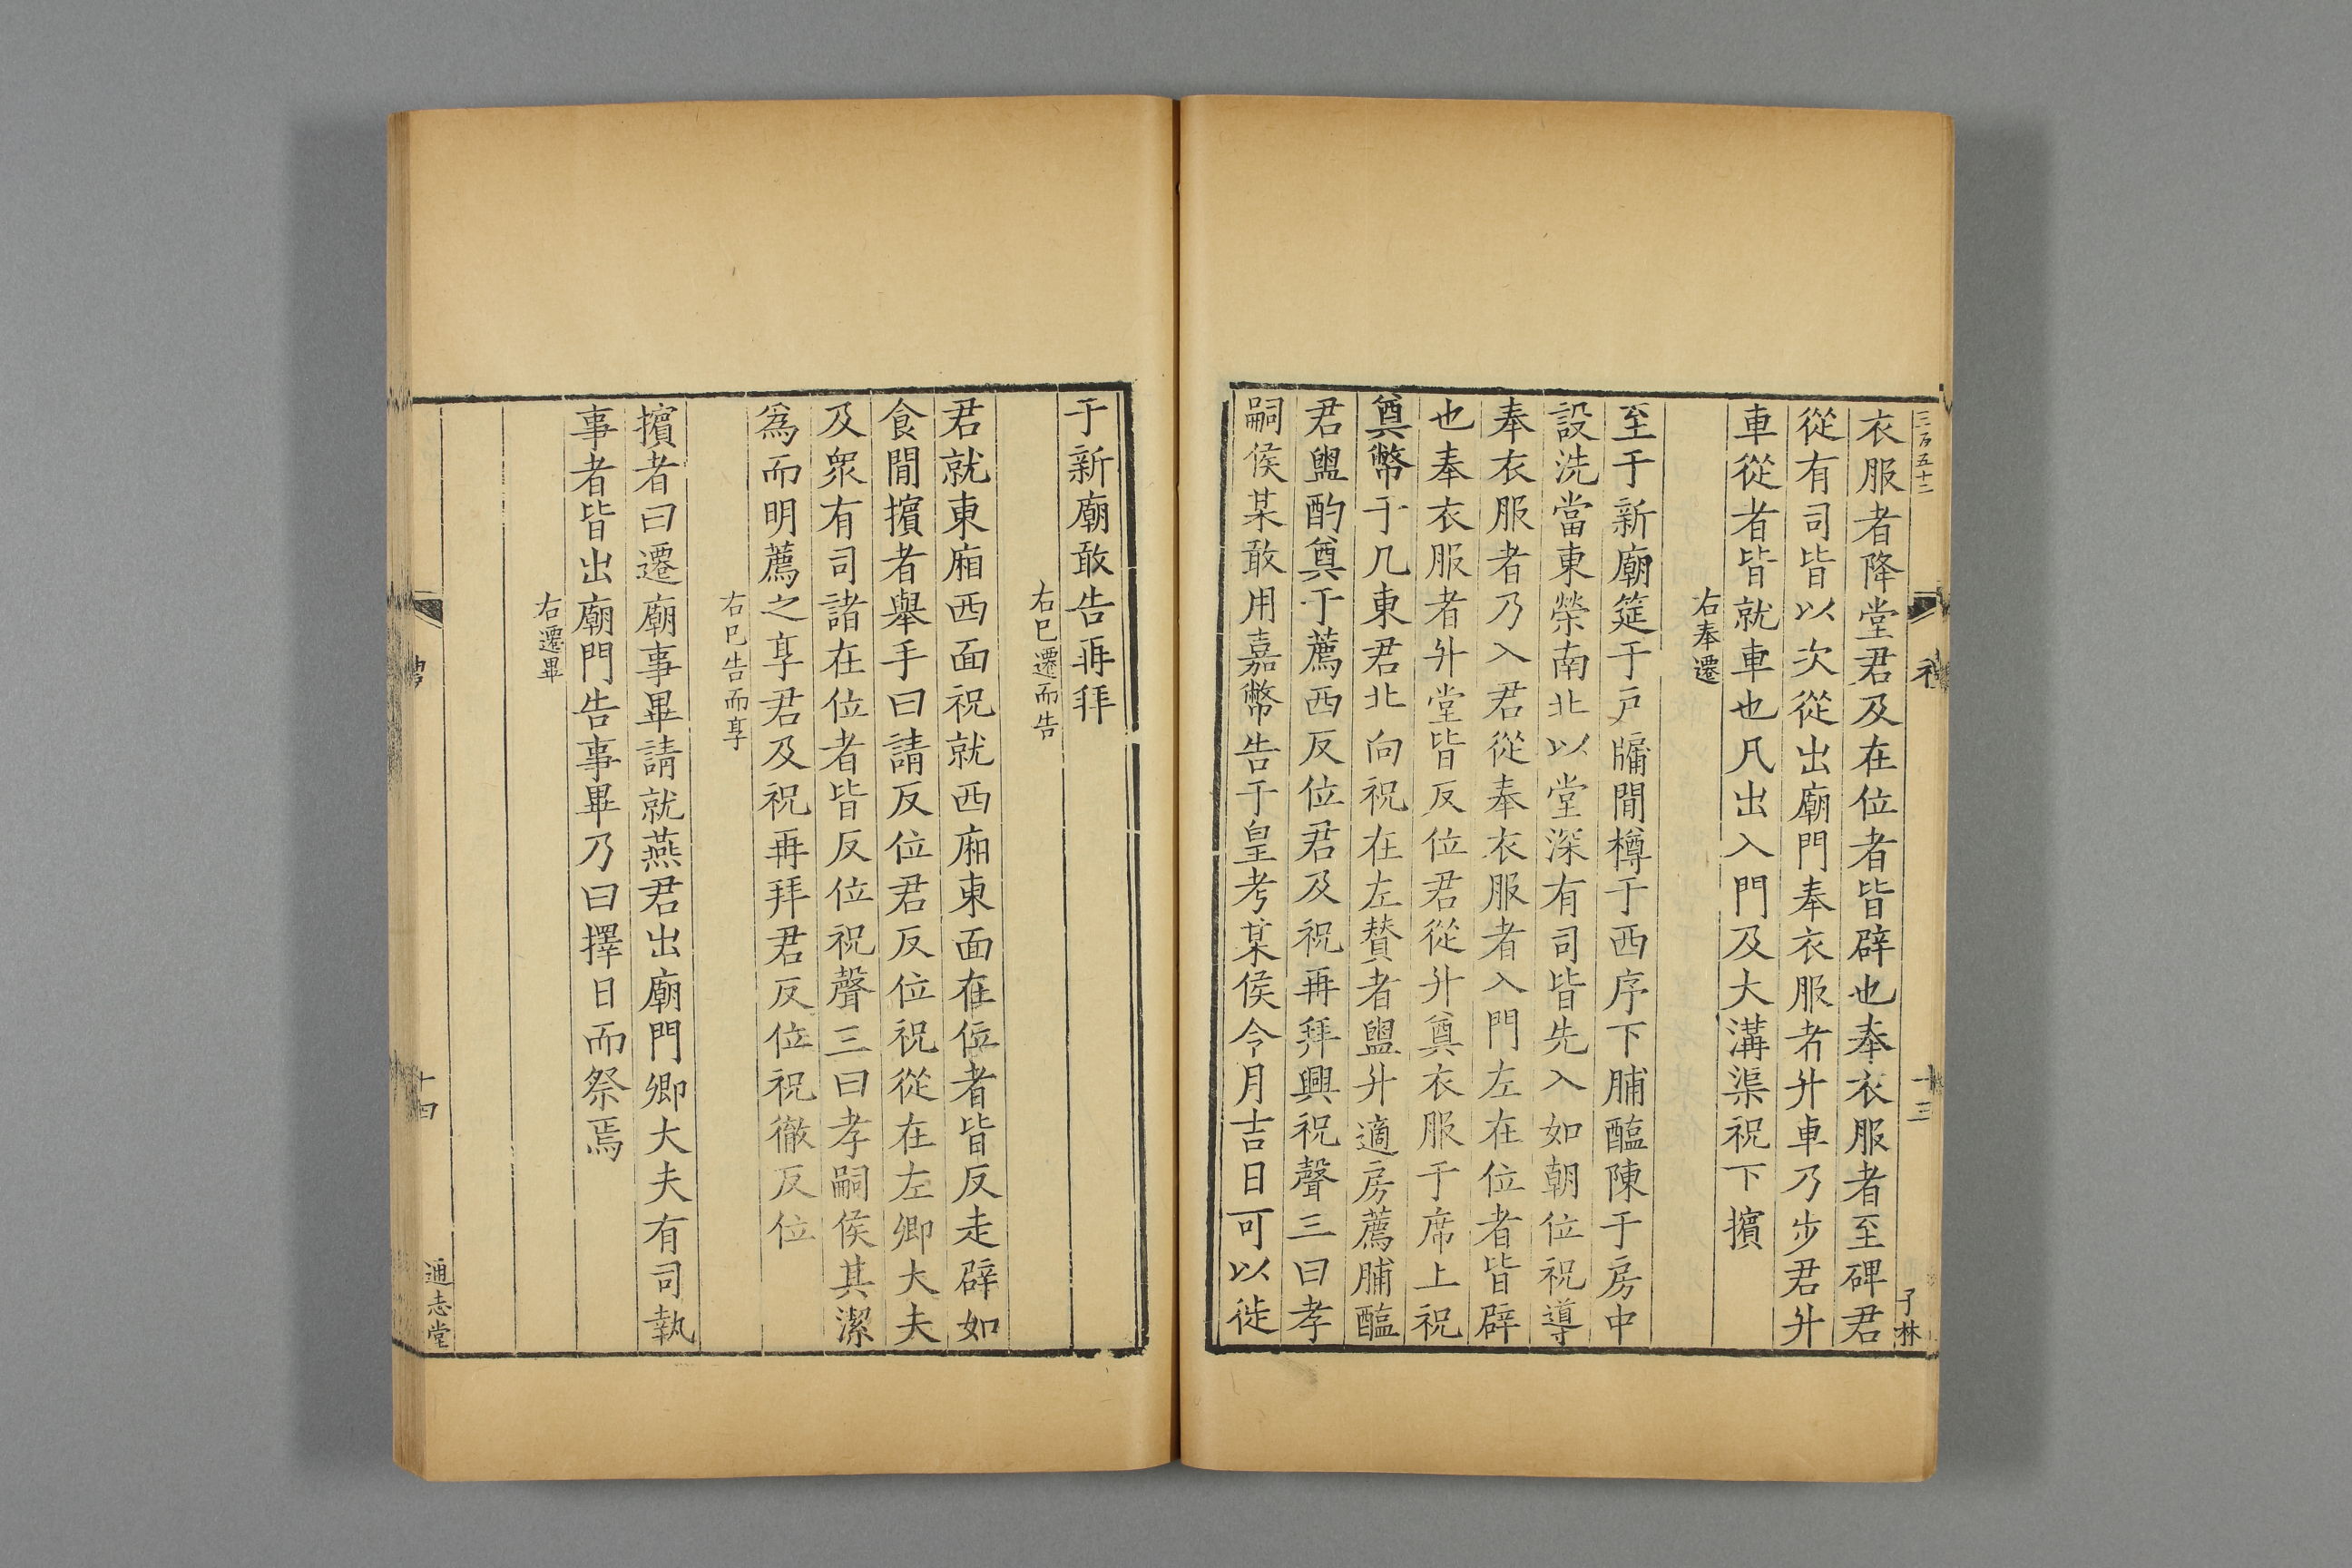 三百五十二
十三
子林
衣服者降堂君及在位者皆辟也奉衣服者至碑君
從有司皆以次從出廟門奉衣服者升車乃步君升
車從者皆就車也凡出入門及大溝渠祝下擯
右奉遷
至于新廟筵于戶牖閒樽于西序下脯醢陳于房中
設洗當東榮南北以堂深有司皆先入如朝位祝導
奉衣服者乃入君從奉衣服者入門左在位者皆辟
也奉衣服者升堂皆反位君從升奠衣服于席上祝
奠幣于几東君北向祝在左贊者盥升適房薦脯醢
君盥酌奠于薦西反位君及祝再拜興祝聲三曰孝
嗣侯某敢用嘉幣告于皇考某侯令月吉日可以徙
于新廟敢告再拜
右已遷而告
君就東廂西面祝就西廂東面在位者皆反走辟如
食閒擯者舉手曰請反位君反位祝從在左卿大夫
及眾有司諸在位者皆反位祝聲三曰孝嗣侯某潔
爲而明薦之享君及祝再拜君反位祝徹反位
右已告而享
擯者曰遷廟事畢請就燕君出廟門卿大夫有司執
事者皆出廟門告事畢乃曰擇日而祭焉
右遷畢
十四
通志堂